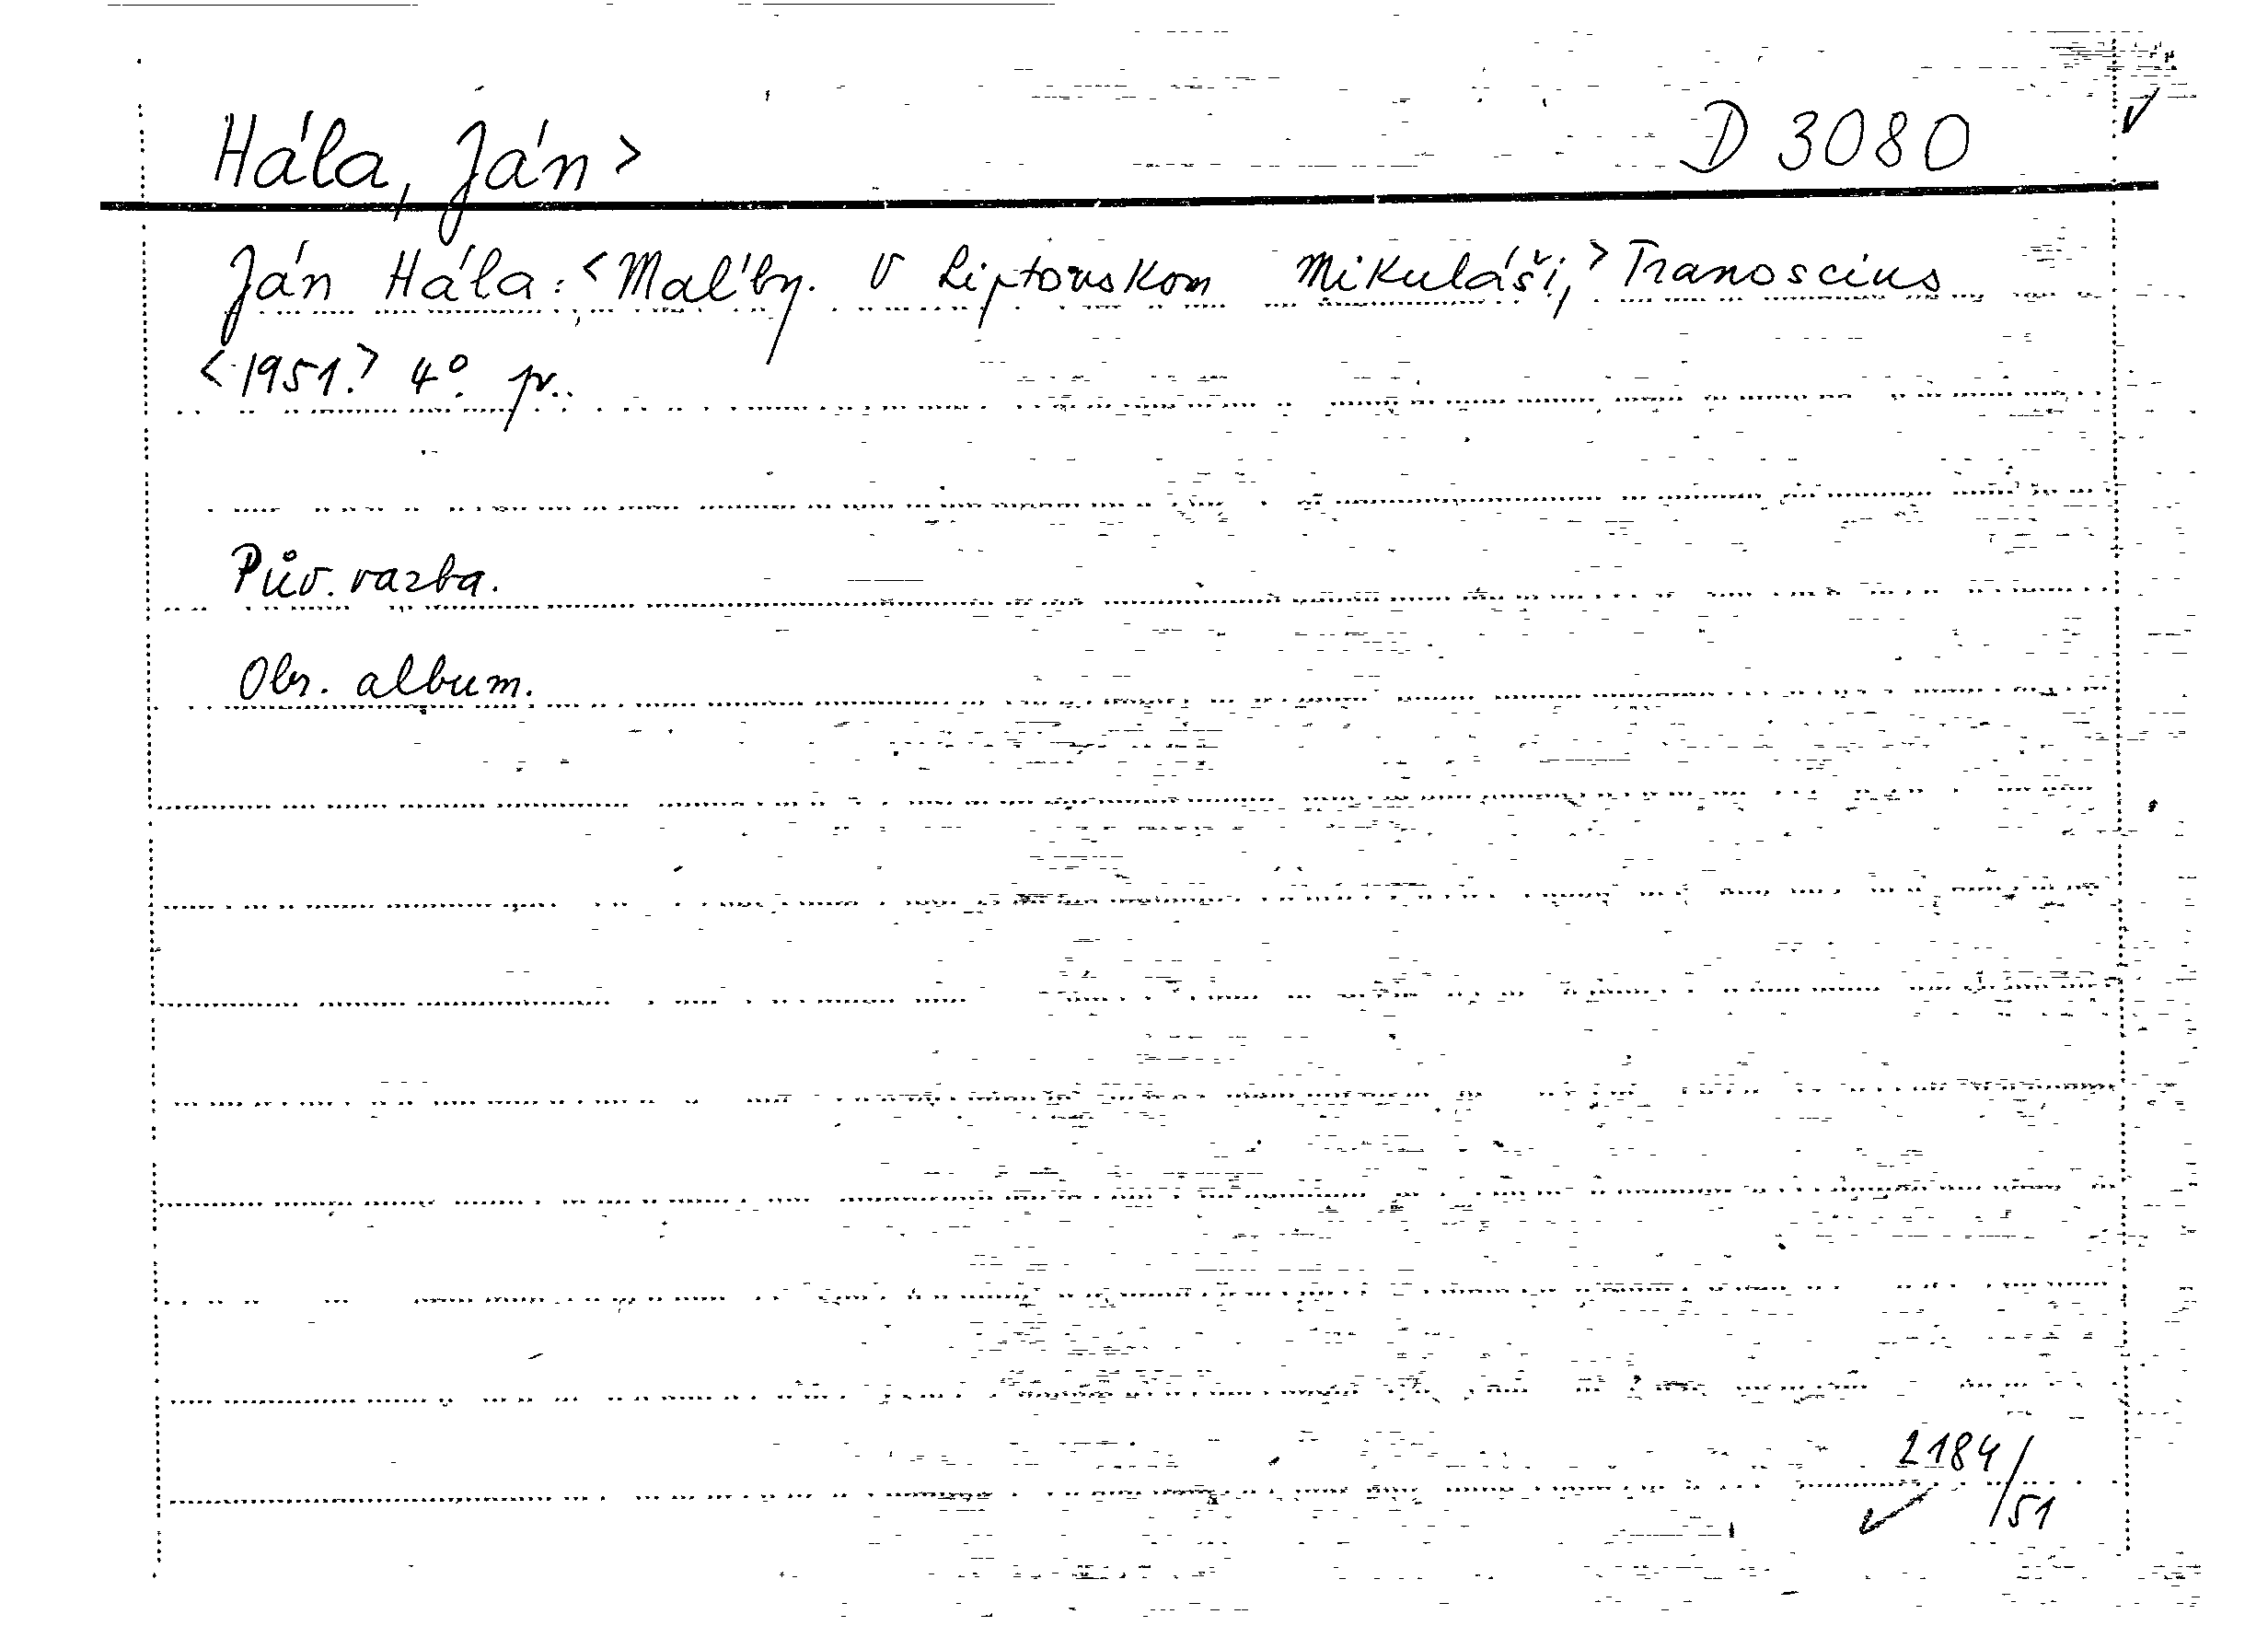 Hála, Ján> D 3080
Ján Hála: <Maľby. V Liptovskom Mikuláši,> Tranoscius
<1951.> 4°. pr..
Pův. vazba.
Obr. album.
2184/51